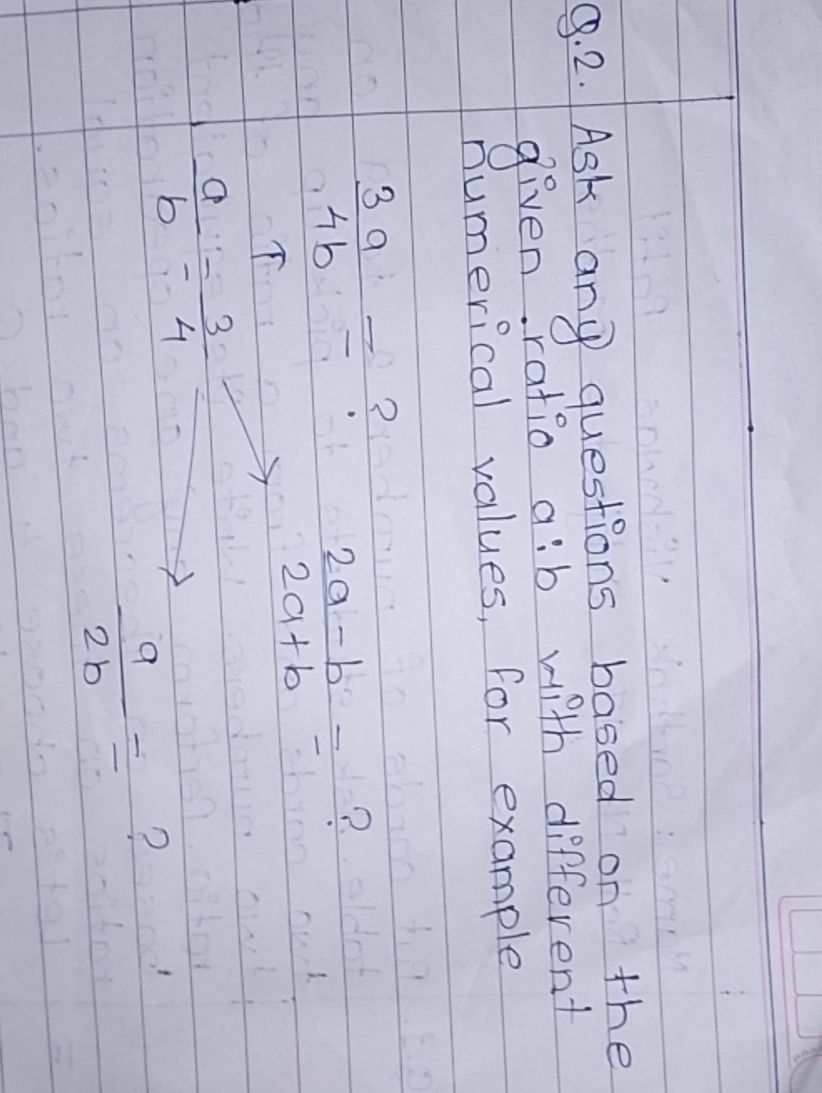 Q.2. Ask any questions based on the
given ratio a:b with different
numerical values, for example
3a/4b = ? 2a-b/2a+b = ?
↑
a/b = 3/4
a/2b = ?